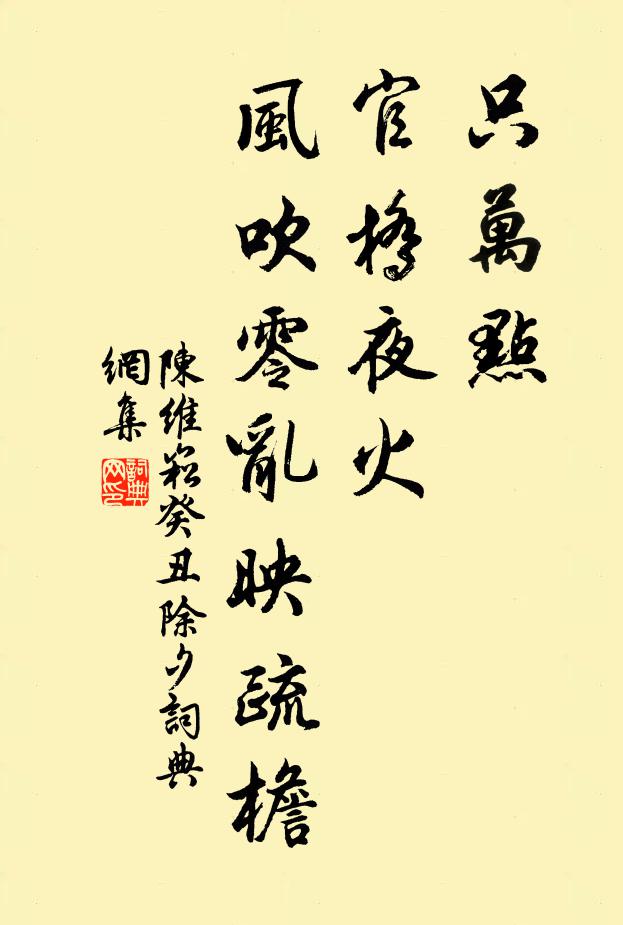 只萬點
官橋夜火
風吹零亂映疏檐
陳維崧癸丑除夕詞典
網集
詞典网印